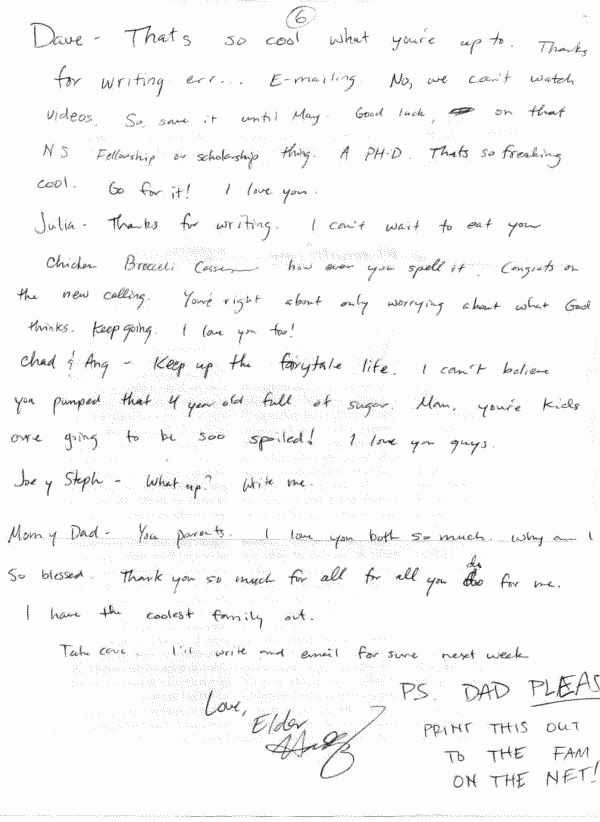 6
Dave - Thats so cool what you're up to. Thanks
for writing err... E-mailing. No, we can't watch
videos. So, save it until May. Good luck, on that
NS Fellowship or scholarship thing. A PH-D. Thats so freaking
cool. Go for it! I love you.
Julia - Thanks for writing. I can't wait to eat your
Chicken Brocceli how ever you spell it. Congrats on
the new calling. You're right about only worrying about what God
thinks. Keep going. I love you too!
Chad & Ang - Keep up the fairytale life. I can't believe
you pumped that 4 year old full of sugar. Man, you're kids
are going to be soo spoiled! I love you guys.
Joe y Steph - What up? Write me.
Mom y Dad - You parents. I love you both so much. Why am I
so blessed. Thank you so much for all for all you do for me.
I have the coolest family out.
Take care. I'll write and email for sure next week
Love,
Elder
PS. DAD PLEAS
PRINT THIS OUT
TO THE FAM
ON THE NET!